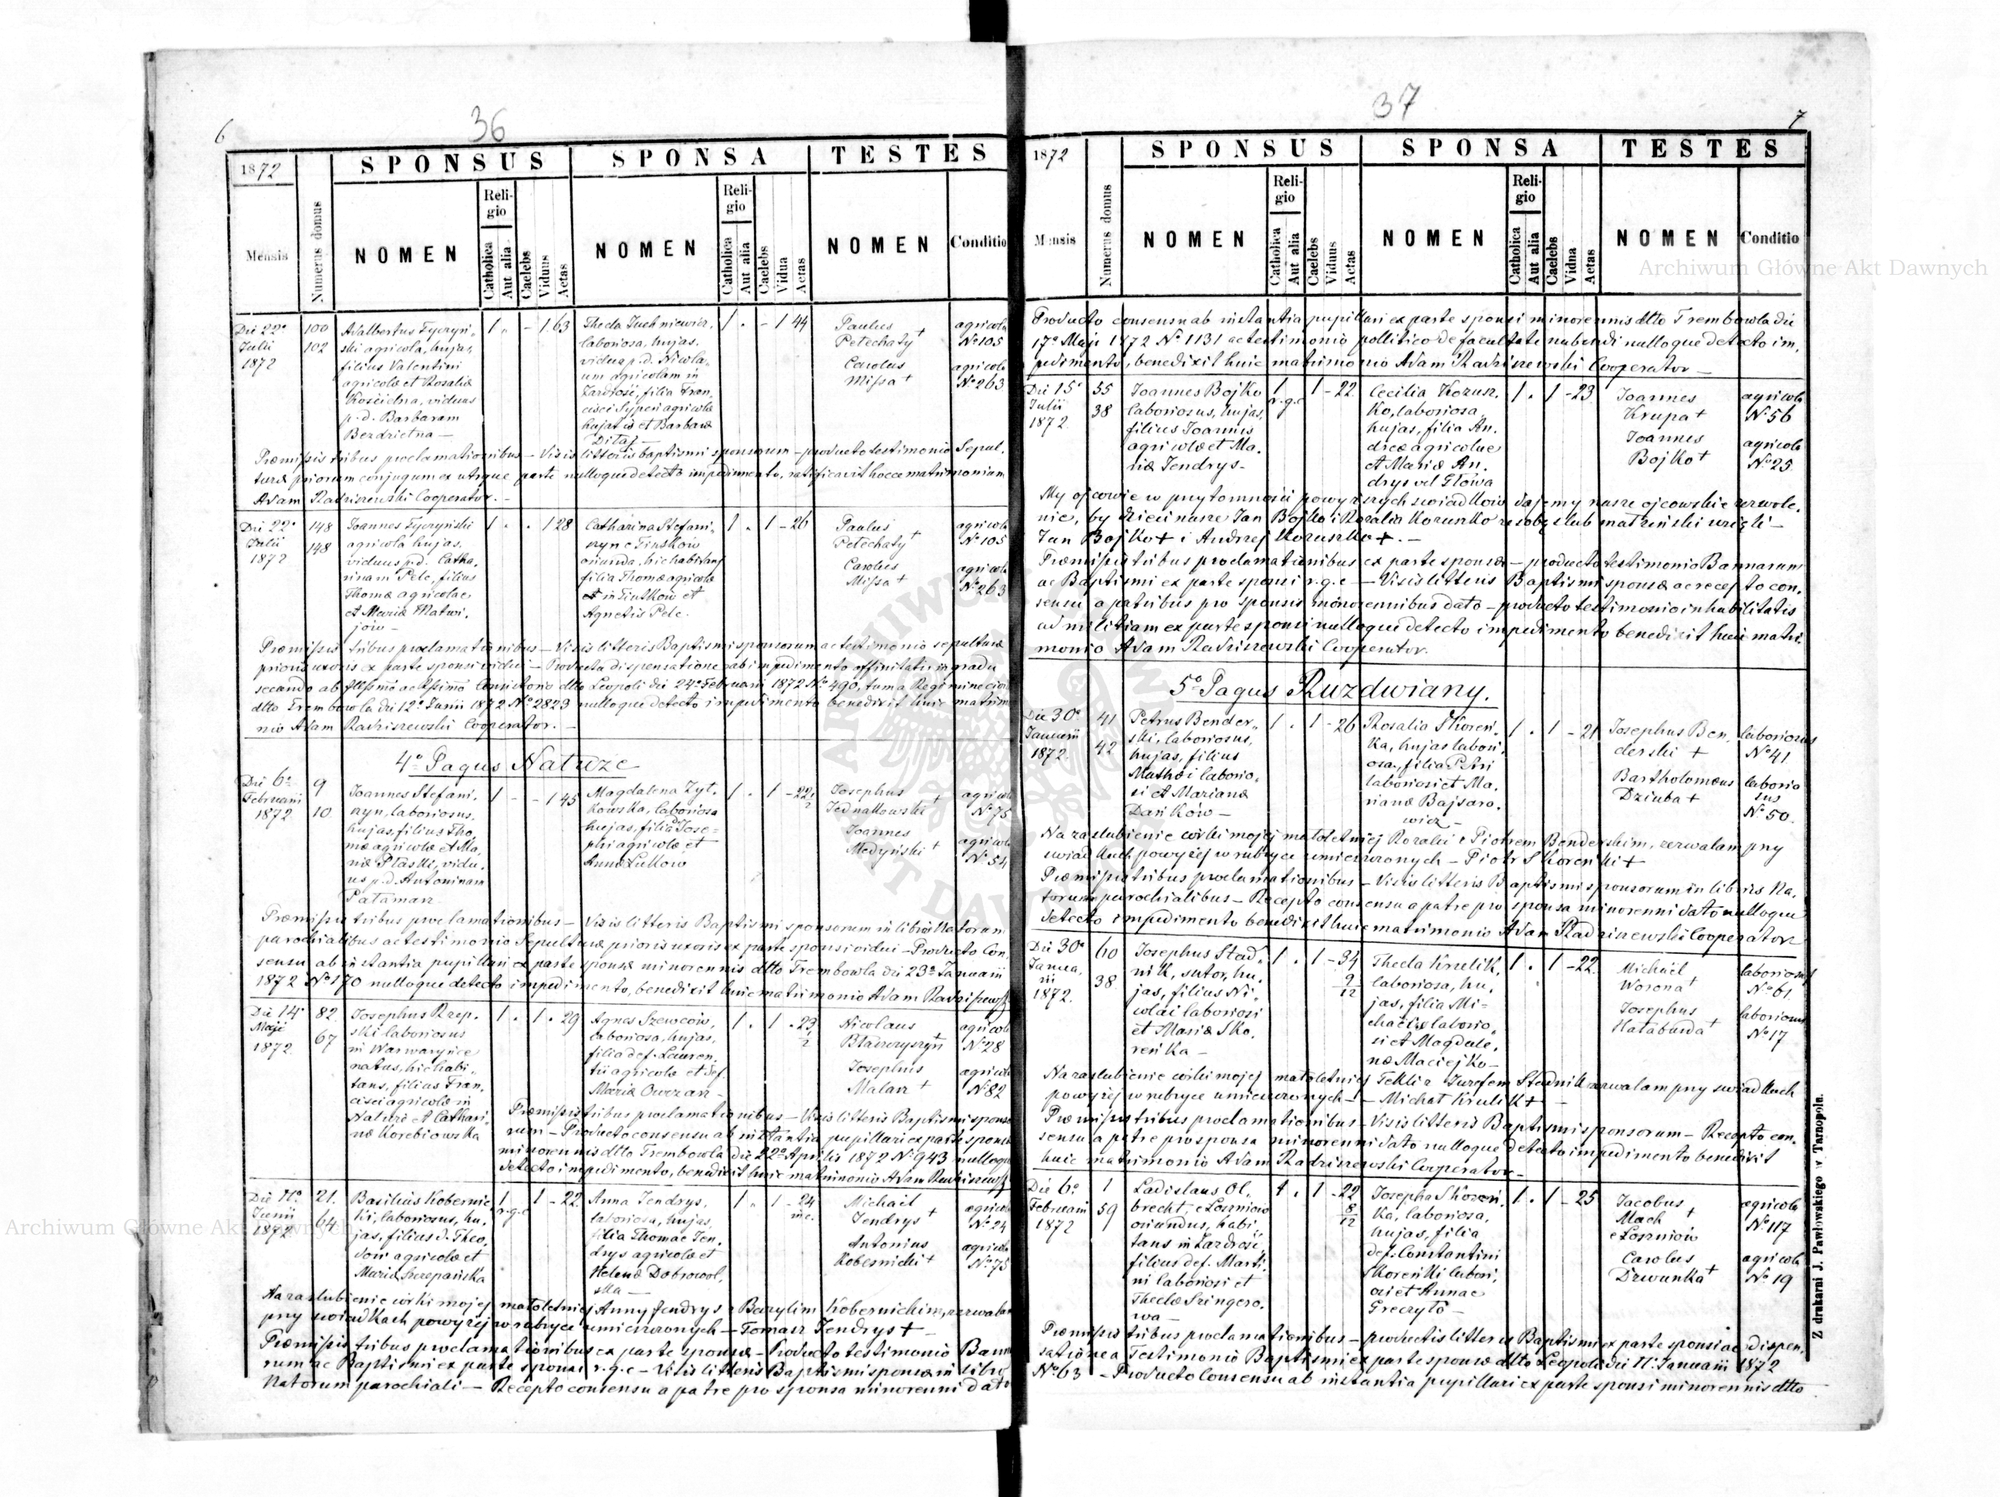 6
36
1872
SPONSUS
SPONSA
TESTES
Mensis
Numerus domus
NOMEN
Religio
Catholica
Aut alia
Caelebs
Viduus
Aetas
NOMEN
Religio
Catholica
Aut alia
Caelebs
Vidua
Aetas
NOMEN
Conditio
Die 22a
Julii
1872
100
102
Adalbertus
ski agricola, hujas,
filius Valentini
agricolæ et Rosaliæ
viduus
p. d. Barbaram
1 . - 1 63
laboriosa, hujas,
vidua p. d. Nicola-
um agricolam in
filia Fran
cisci
hujatis et Barbaræ
1 . - 1 44
Paulus
Petechaty +
Carolus
Missa +
agricola
No 105
agricola
No 263
Præmissis tribus proclamationibus - Visis litteris baptismi sponsorum - producto testimonio Sepul-
turæ priorum conjugum ex utrque parte nulloque detecto impedimento, ratificavit hocce matrimonium
Adam Radziszewski Cooperator. -
Die 22a
Julii
1872
148
148
Joannes
agricola hujas,
viduus p. d. Catha-
rinam Pelc, filius
Thomæ agricolæ,
et Mariæ Matwi-
jow -
1 . . 1 28
Catharina Stefani-
oriunda, hic habitans
filia Thomæ agricolæ
Agnetis Pelc.
1 . 1 - 26
Paulus
Petechaty +
Carolus
Missa +
agricola
No 105
agricola
No 263
Præmissis tribus proclamationibus - Visis litteris Baptismi sponsorum ac testimonio sepulturæ
prioris uxoris ex parte sponsi vidui - Producta dispensatione ab impedimento affinitatis in gradu
Consistorio dtto Leopoli die 24a Februarii 1872 No 490,
dtto Trembowla die 12a Junii 1872 No 2823 nulloque detecto impedimento benedixit huic matrimo
nio Adam Radziszewski Cooperator. -
4o Pagus Nałuże
Die 6a
Februarii
1872
9
10
Joannes Stefani-
szyn, laboriosus,
hujas, filius Tho-
mæ agricolæ et Ma-
riæ Ptaszek, vidu-
us p. d. Antoninam
Pataman
1 - - 1 45
Magdalena Żyt-
kowska, laboriosa
hujas, filia Jose-
phi agricolæ et
Annæ
1 . 1 - 22
Josephus
Jednakowski +
Joannes
Medyński +
agricola
No 75
agricola
No 54
Præmissis tribus proclamationibus - Visis litteris Baptismi sponsorum in libris Natorum
parochialibus ac testimonio Sepulturæ prioris uxoris ex parte sponsi vidui - Producto Con-
sensu ab instantia pupillari ex parte sponsæ minorennis dtto Trembowla die 23a Januarii
1872 No 170 nulloque detecto impedimento, benedixit huic matrimonio Adam Radziszewski
Die 14a
Maji
1872
82
67
Josephus Rzep-
ski laboriosus
in Warwaryńce
natus, hic habi-
tans, filius Fran-
cisci agricolæ in
Nałuże et Cathari-
næ Korebiowska
1 . 1 . 29
Agnes Szewców,
laboriosa, hujas,
filia def. Lauren-
tii agricolæ et def.
Mariæ Owczar -
1 . 1 . 23
Nicolaus
Josephus
Malarz +
agricola
No 28
agricola
No 82
Præmissis tribus proclamationibus - Visis litteris Baptismi sponso
rum - Producto consensu ab instantia pupillari ex parte sponsæ
minorennis dtto Trembowla die 22a Aprilis 1872 No 943 nulloque
detecto impedimento, benedixit huic matrimonio Adam Radziszewski
Die 11a
Junii
1872
21.
64
Basilius Kobernic-
ki, laboriosus, hu-
jas, filius d. Theo-
dori agricolæ et
Mariæ Szczepańska
1 r.g.c. 1 - 22
Anna Jendrys,
laboriosa, hujas,
filia Thomae Jen-
drys agricolæ et
Helenæ Dobrowol-
ska -
1 . 1 - 24
Michael
Jendrys +
Antonius
Kobernicki +
agricola
No 24
agricola
No 75
Na zaślubienie córki mojej małoletniej Anny Jendrys z Bazylim Kobernickim, zezwalam
przy swiadkach powyżej w rubryce umieszczonych - Tomasz Jendrys + -
Præmissis tribus proclamationibus ex parte sponsæ - Producto testimonio Banno
rum ac Baptismi ex parte sponsi r. g. c - Visis litteris Baptismi sponsæ in libro
Natorum parochiali - Recepto consensu a patre pro sponsa minorenni dato
37
7
1872
SPONSUS
SPONSA
TESTES
Mensis
Numerus domus
NOMEN
Religio
Catholica
Aut alia
Caelebs
Viduus
Aetas
NOMEN
Religio
Catholica
Aut alia
Caelebs
Vidua
Aetas
NOMEN
Conditio
Producto consensu ab instantia pupillari ex parte sponsi minorennis dtto Trembowla die
17a Maji 1872 No 1131 ac testimonio politico de facultate nubendi nulloque detecto im-
pedimento, benedixit huic matrimonio Adam Radziszewski Cooperator -
Die 15a
Julii
1872
35
38
Joannes Bojko
laboriosus, hujas,
filius Joannis
agricolæ et Ma-
riæ Jendrys -
1 r.g.c 1 - 22
Cecilia Korusz-
ko, laboriosa,
hujas, filia An-
dreæ agricolae
et Mariæ An-
drys vel Głowa
1 . 1 - 23
Joannes
Krupa +
Joannes
Bojko +
agricola
No 56
agricola
No 25
My ojcowie w przytomności powyższych swiadków dajemy nasze ojcowskie zezwole-
nie, by dzieci nasze Jan Bojko i Rozalia Koruszko ze sobą slub małżeński wzięli -
Jan Bojko + i Andrzej Koruszko +. -
Præmissis tribus proclamationibus ex parte sponsæ - producto testimonio Bannorum
ac Baptismi ex parte sponsi r. g. c - Visis litteris Baptismi sponsæ ac recepto con-
sensu a patribus pro sponsis minorennibus dato - producto testimonio inhabilitatis
ad militiam ex parte sponsi nulloque detecto impedimento benedixit huic matri-
monio Adam Radziszewski Cooperator.
5o Pagus Ruzdwiany.
Die 30a
Januarii
1872
41
42
Petrus Bender-
ski, laboriosus,
hujas, filius
Mathæi laborio-
si et Marianæ
Dańków -
1 . 1 - 26
Rosalia Skoreń-
ka, hujas labori-
osa, filia Petri
laboriosi et Ma-
rianæ Bajsaro-
wicz -
1 . 1 - 21
Josephus Ben-
derski +
Bartholomæus
Dziuba +
laboriosus
No 41
laborio
sus
No 50.
Na zaslubienie córki mojej małoletniej Rozali z Piotrem Benderskim, zezwalam przy
swiadkach powyżej w rubryce umieszczonych - Piotr Skoreński +
Præmissis tribus proclamationibus - Visis litteris Baptismi sponsorum in libris Na-
torum parochialibus - Recepto consensu a patre pro sponsa minorenni dato nulloque
detecto impedimento benedixit huic matrimonio Adam Radziszewski Cooperator
Die 30a
Janua-
rii
1872.
60
38
Josephus Stad-
nik, sutor, hu-
jas, filius Ni-
colai laboriosi
et Mariæ Sko-
reńka -
1 . 1 - 34 9/12
Thecla Krulik,
laboriosa, hu-
jas, filia Mi-
chaelis laborio-
si et Magdale-
næ Maciejko -
1 . 1 - 22
Michael
Worona +
Josephus
Hałaburda +
laboriosus
No 61
laboriosus
No 17
Na zaslubienie córki mojej małoletniej Tekli z Jozefem Stadnik zezwalam przy swiadkach
powyżej w rubryce umieszczonych - Michał Krulik +
Præmissis tribus proclamationibus - Visis litteris Baptismi sponsorum - Recepto con-
sensu a patre pro sponsa minorenni dato nulloque detecto impedimento benedixit
huic matrimonio Adam Radziszewski Cooperator -
Die 6a
Februarii
1872
1
59
Ladislaus Ol-
brecht, e Łoszniow
oriundus, habi-
tans in Zazdrość,
filius def. Marti-
ni laboriosi et
Theclæ Szingero-
wa -
1 . 1 - 22 8/12
Josepha Skoreń-
ka, laboriosa,
hujas, filia
def. Constantini
Skoreńki labori-
osi et Annae
Greczyło -
1 . 1 - 25
Jacobus
Mach +
e Łoszniów
Carolus
Dzwonka +
agricola
No 117
agricola
No 19
Præmissis tribus proclamationibus - productis litteris Baptismi ex parte sponsi ac dispen-
satione a Testimonio Baptismi ex parte sponsæ dtto Leopoli die 11a Januarii 1872
No 63 - Producto Consensu ab instantia pupillari ex parte sponsi minorennis dtto
Z drukarni J. Pawłowskiego w Tarnopolu.
Archiwum Główne Akt Dawnych
Archiwum Główne Akt Dawnych